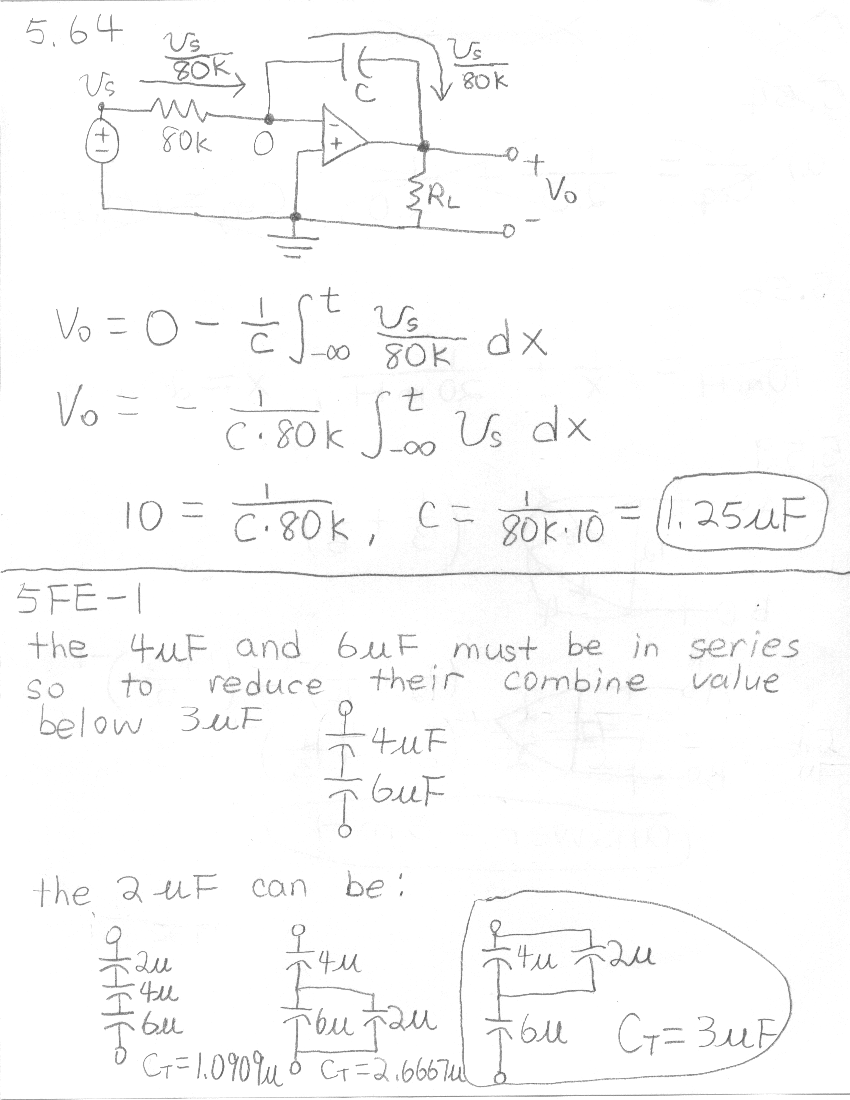 5.64
Vs/80k
Vs/80k
Vs
C
80k
0
- +
+ -
RL
+
Vo
-
Vo = 0 - 1/C ∫_-∞^t Vs/80k dx
Vo = - 1/(C·80k) ∫_-∞^t Vs dx
10 = 1/(C·80k), C = 1/(80k·10) = 1.25uF
5FE-1
the 4uF and 6uF must be in series
so to reduce their combine value
below 3uF
4uF
6uF
the 2uF can be:
2u
4u
6u
CT=1.0909u
4u
6u 2u
CT=2.6667u
4u 2u
6u CT=3uF